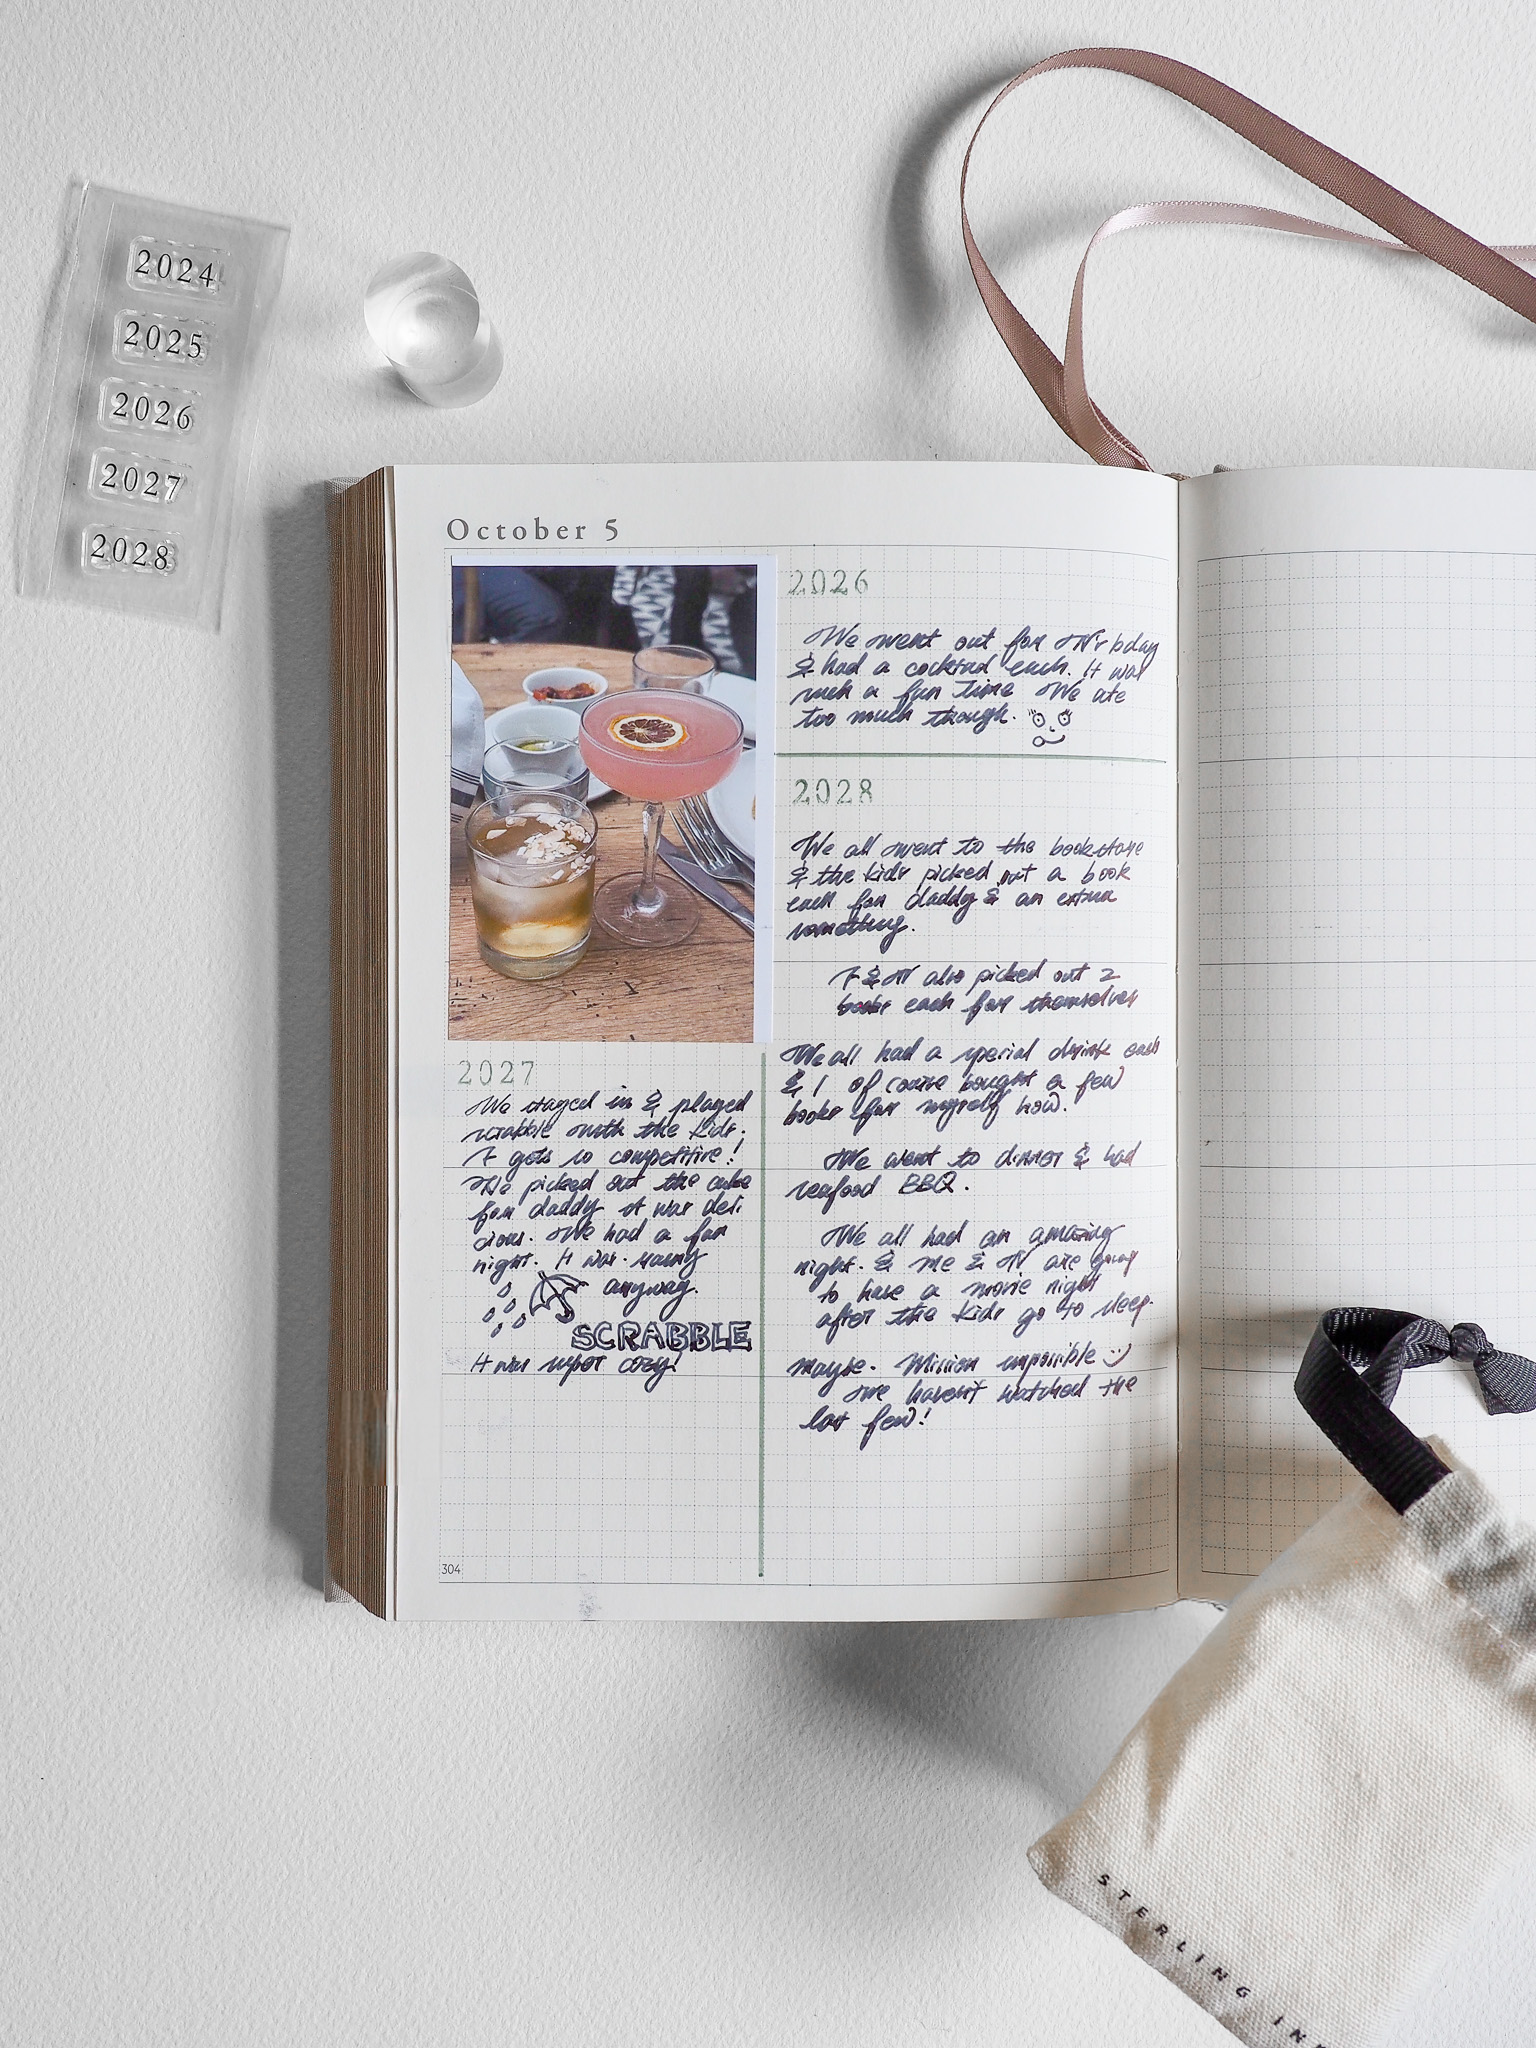 2024
2025
2026
2027
2028
October 5
2026
We went out for bday
& had a cocktail each. It was
such a fun time We ate
too much though.
2027
We stayed in & played
scrabble with the kids.
gets so competitive!
We picked out the cake
for daddy it was deli
cious. We had a fun
night. It was rainy
anyway.
SCRABBLE
It was super cozy!
2028
We all went to the bookstore
& the kids picked out a book
each for daddy & an extra
something.
also picked out 2
books each for themselves
We all had a special drink each
& I of course bought a few
books for myself now.
We went to dinner & had
seafood BBQ.
We all had an amazing
night. & me & are going
to have a movie night
after the kids go to sleep.
maybe. Mission impossible :)
we haven't watched the
last few!
304
STERLING INK